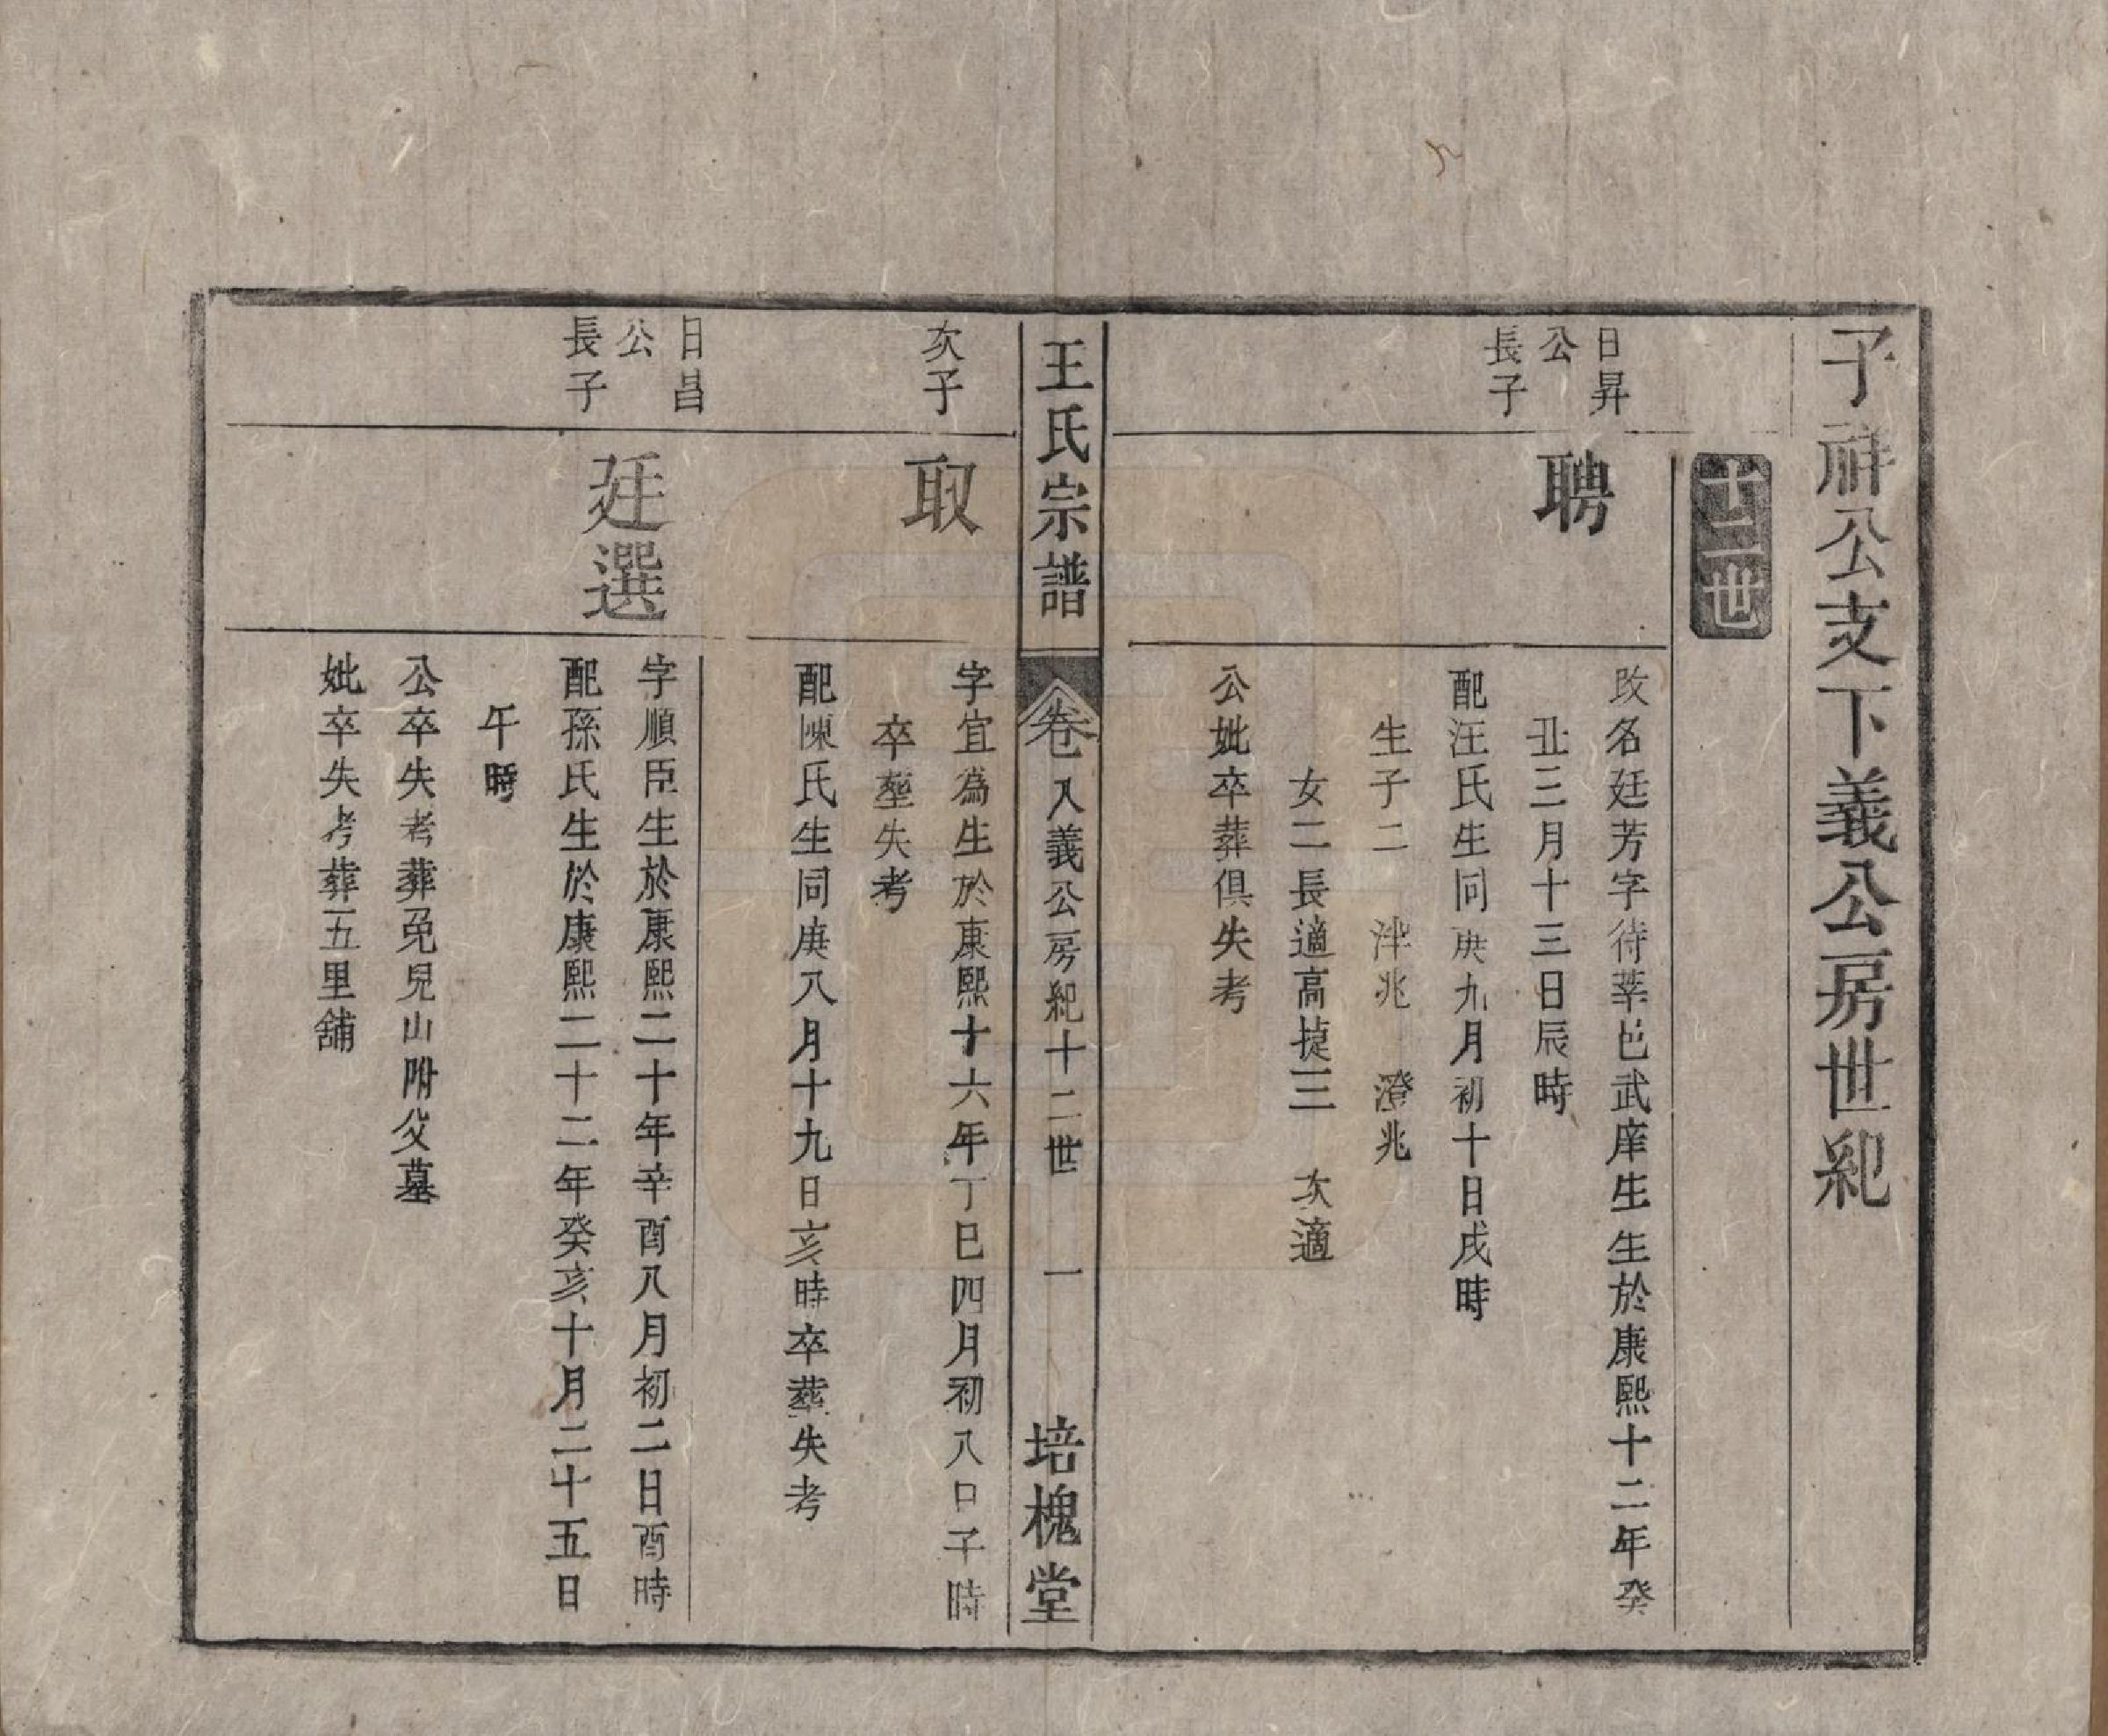 子祥公支下義公房世紀
十二世
日昇
公
長子
聘
改名廷芳字待莘邑武庠生生於康熙十二年癸
丑三月十三日辰時
配汪氏生同庚九月初十日戌時
生子二 泮兆 澄兆
女二長適高捷三 次適
公妣卒葬俱失考
王氏宗譜
卷八義公房紀十二世 一
培槐堂
次子
取
字宜為生於康熙十六年丁巳四月初八日子時
卒塟失考
配陳氏生同庚八月十九日亥時卒葬失考
日昌
公
長子
廷選
字順臣生於康熙二十年辛酉八月初二日酉時
配孫氏生於康熙二十二年癸亥十月二十五日
午時
公卒失考葬兎兒山附父墓
妣卒失考葬五里舖